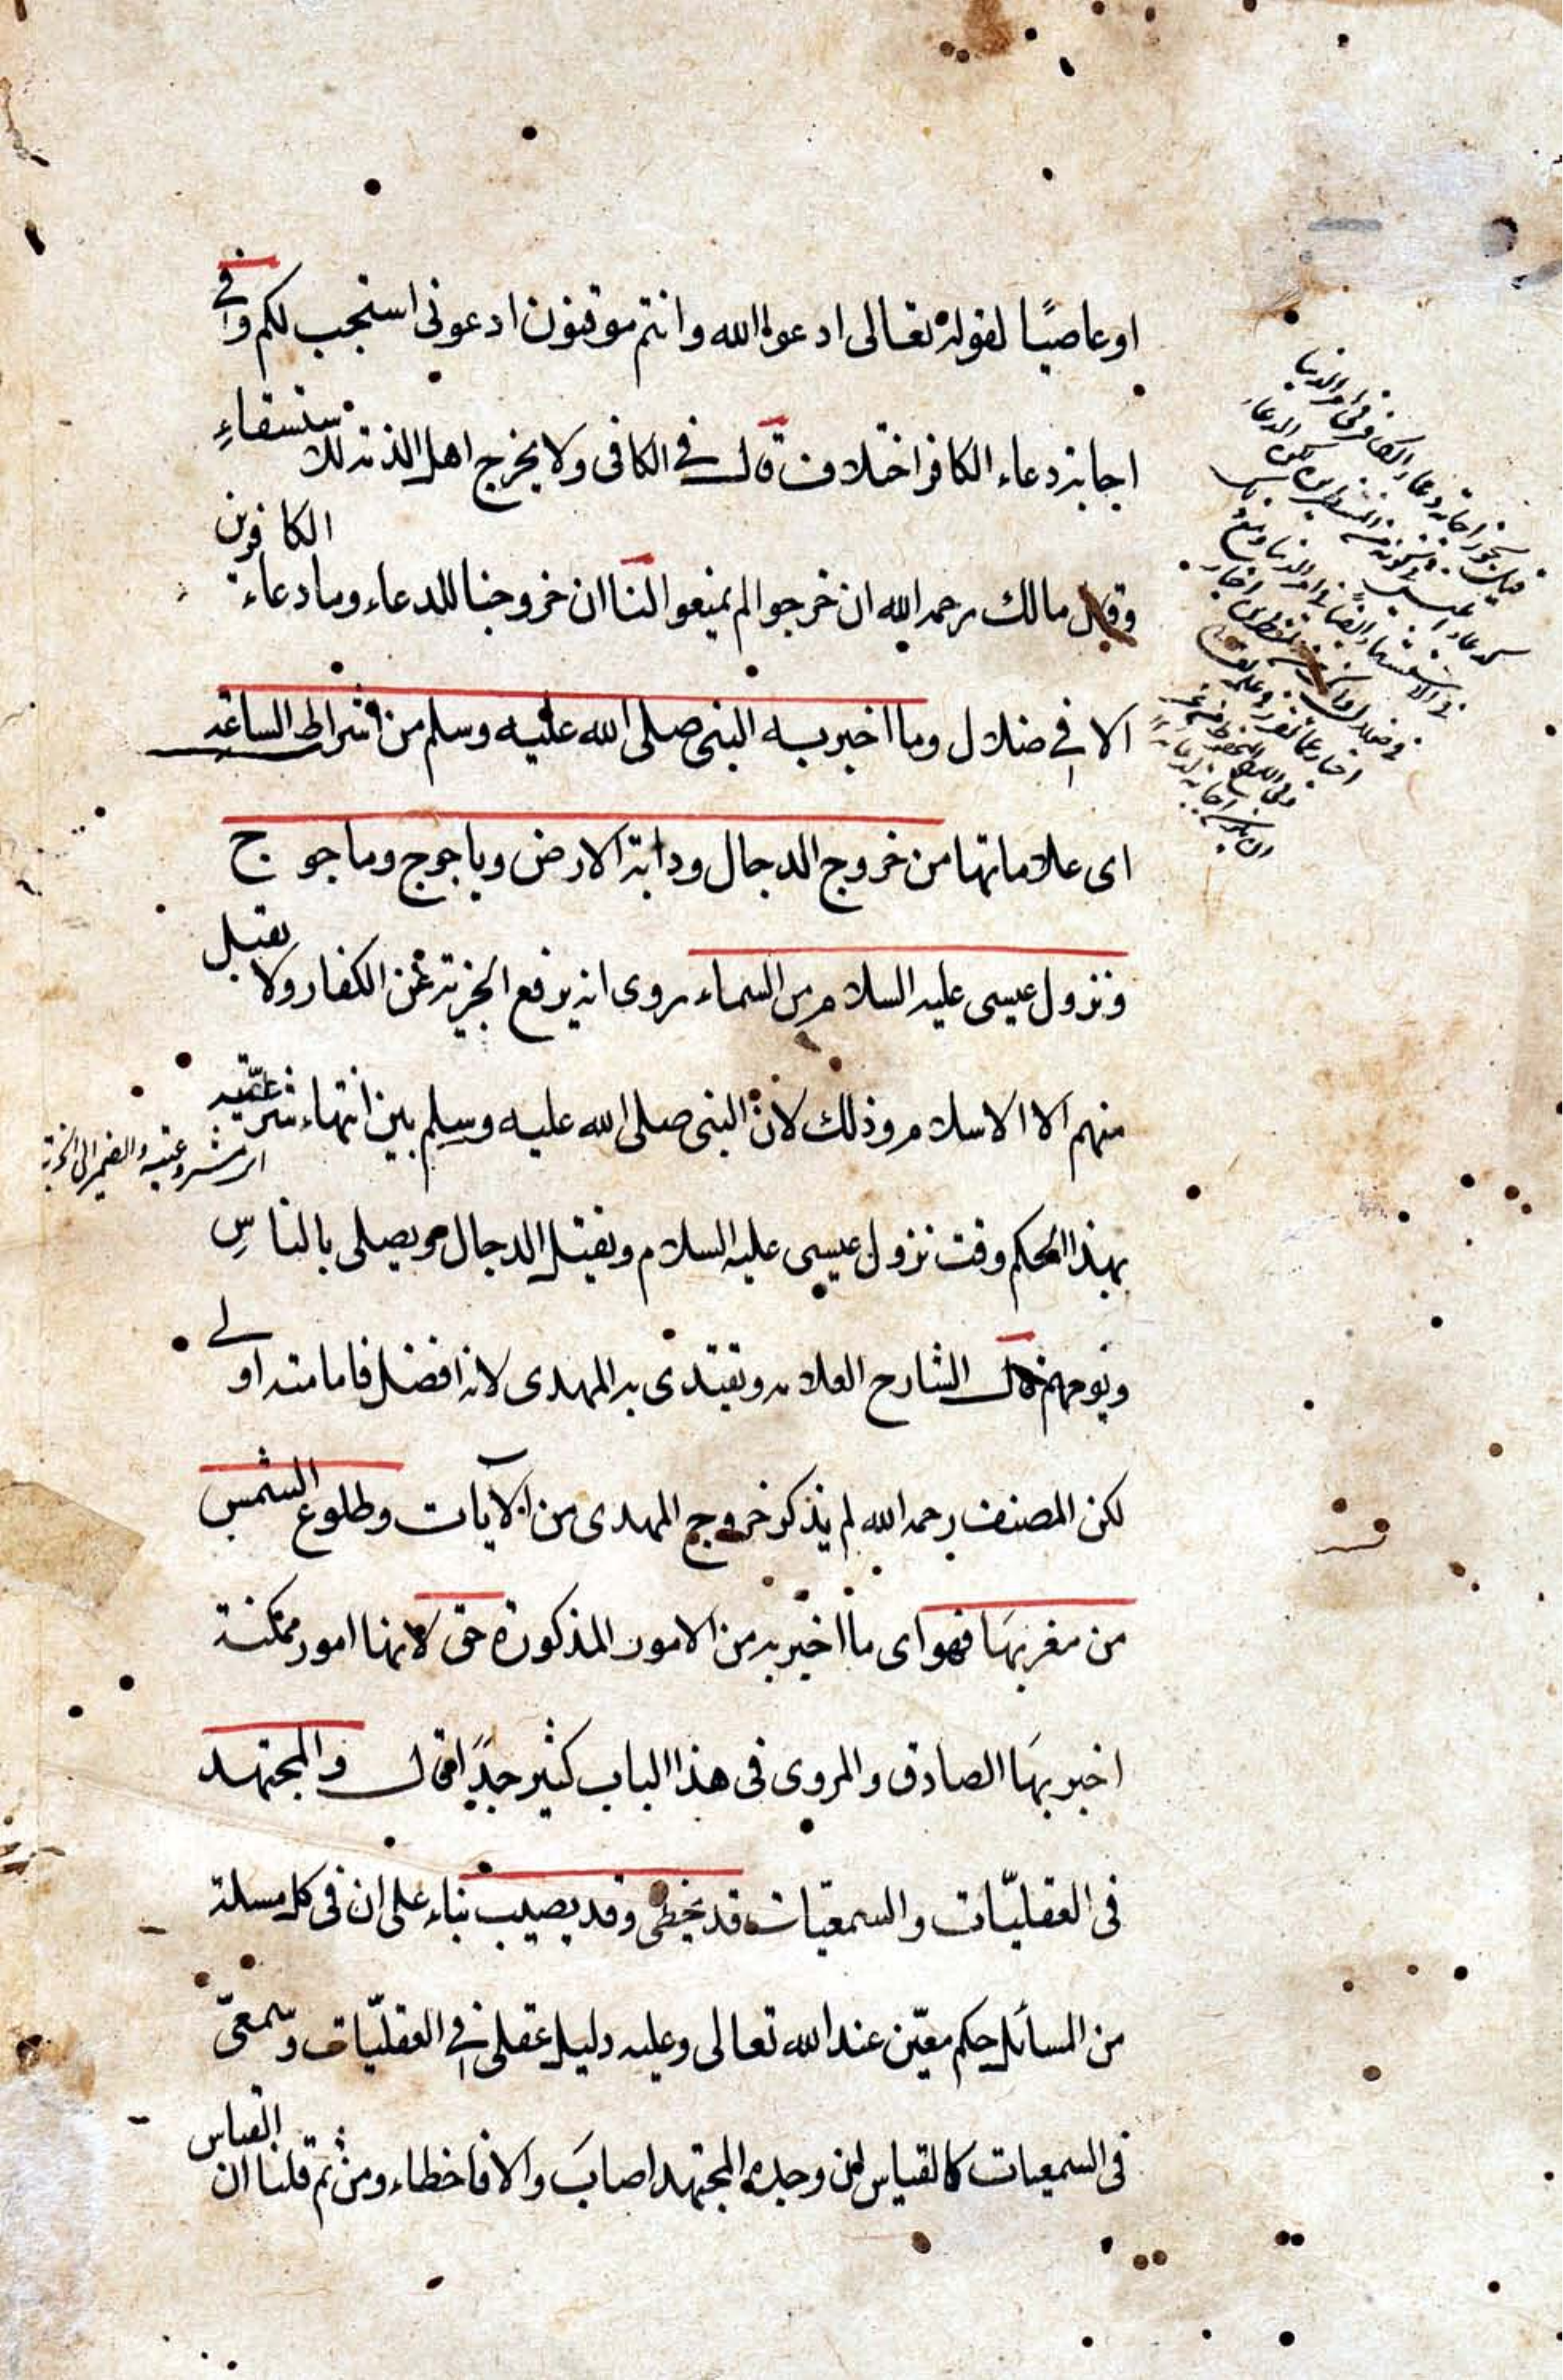 او عاصيًا لقوله تعالى ادعوا الله وانتم موقنون ادعونى استجب لكم وفي
اجابة دعاء الكافر اختلاف قال في الكافى ولا يخرج اهل الذمة للاستسقاءِ
وقال مالك رحمه الله ان خرجوا لم يمنعوا لنا ان خروجنا للدعاء وما دعاء الكافرين
الا في ضلال وما اخبر به النبى صلى الله عليه وسلم من اشراط الساعة
اى علاماتها من خروج الدجال ودابة الارض وياجوج وماجوج
ونزول عيسى عليه السلام من السماء روى انه يرفع الجزية عن الكفار ولا يقبل
منهم الا الاسلام وذلك لان النبى صلى الله عليه وسلم بين انتهاء شرعيته
اى مشروعيته والضمير الى الجزية
بهذا الحكم وقت نزول عيسى عليه السلام ويقتل الدجال ويصلى بالناسِ
ويؤمهم قال الشارح العلامه ويقتدى به المهدى لانه افضل فامامته اولى
لكن المصنف رحمه الله لم يذكر خروج المهدى من الآيات وطلوع الشمس
من مغربهَا فهو اى ما اخبر به من الامور المذكورة حق لانها امور ممكنة
اخبر بهَا الصادق والمروى فى هذا الباب كثير جدًا قال والمجتهد
فى العقليّات والسمعيّات قد يخطى وقد يصيب بناء على ان فى كل مسلة
من المسائل حكم معيّن عند الله تعالى وعليه دليل عقلى في العقليّات وسمعىّ
فى السمعيات كالقياس لمن وجده المجتهد اصابَ والا فاخطاء ومن ثم قلنا ان القياس